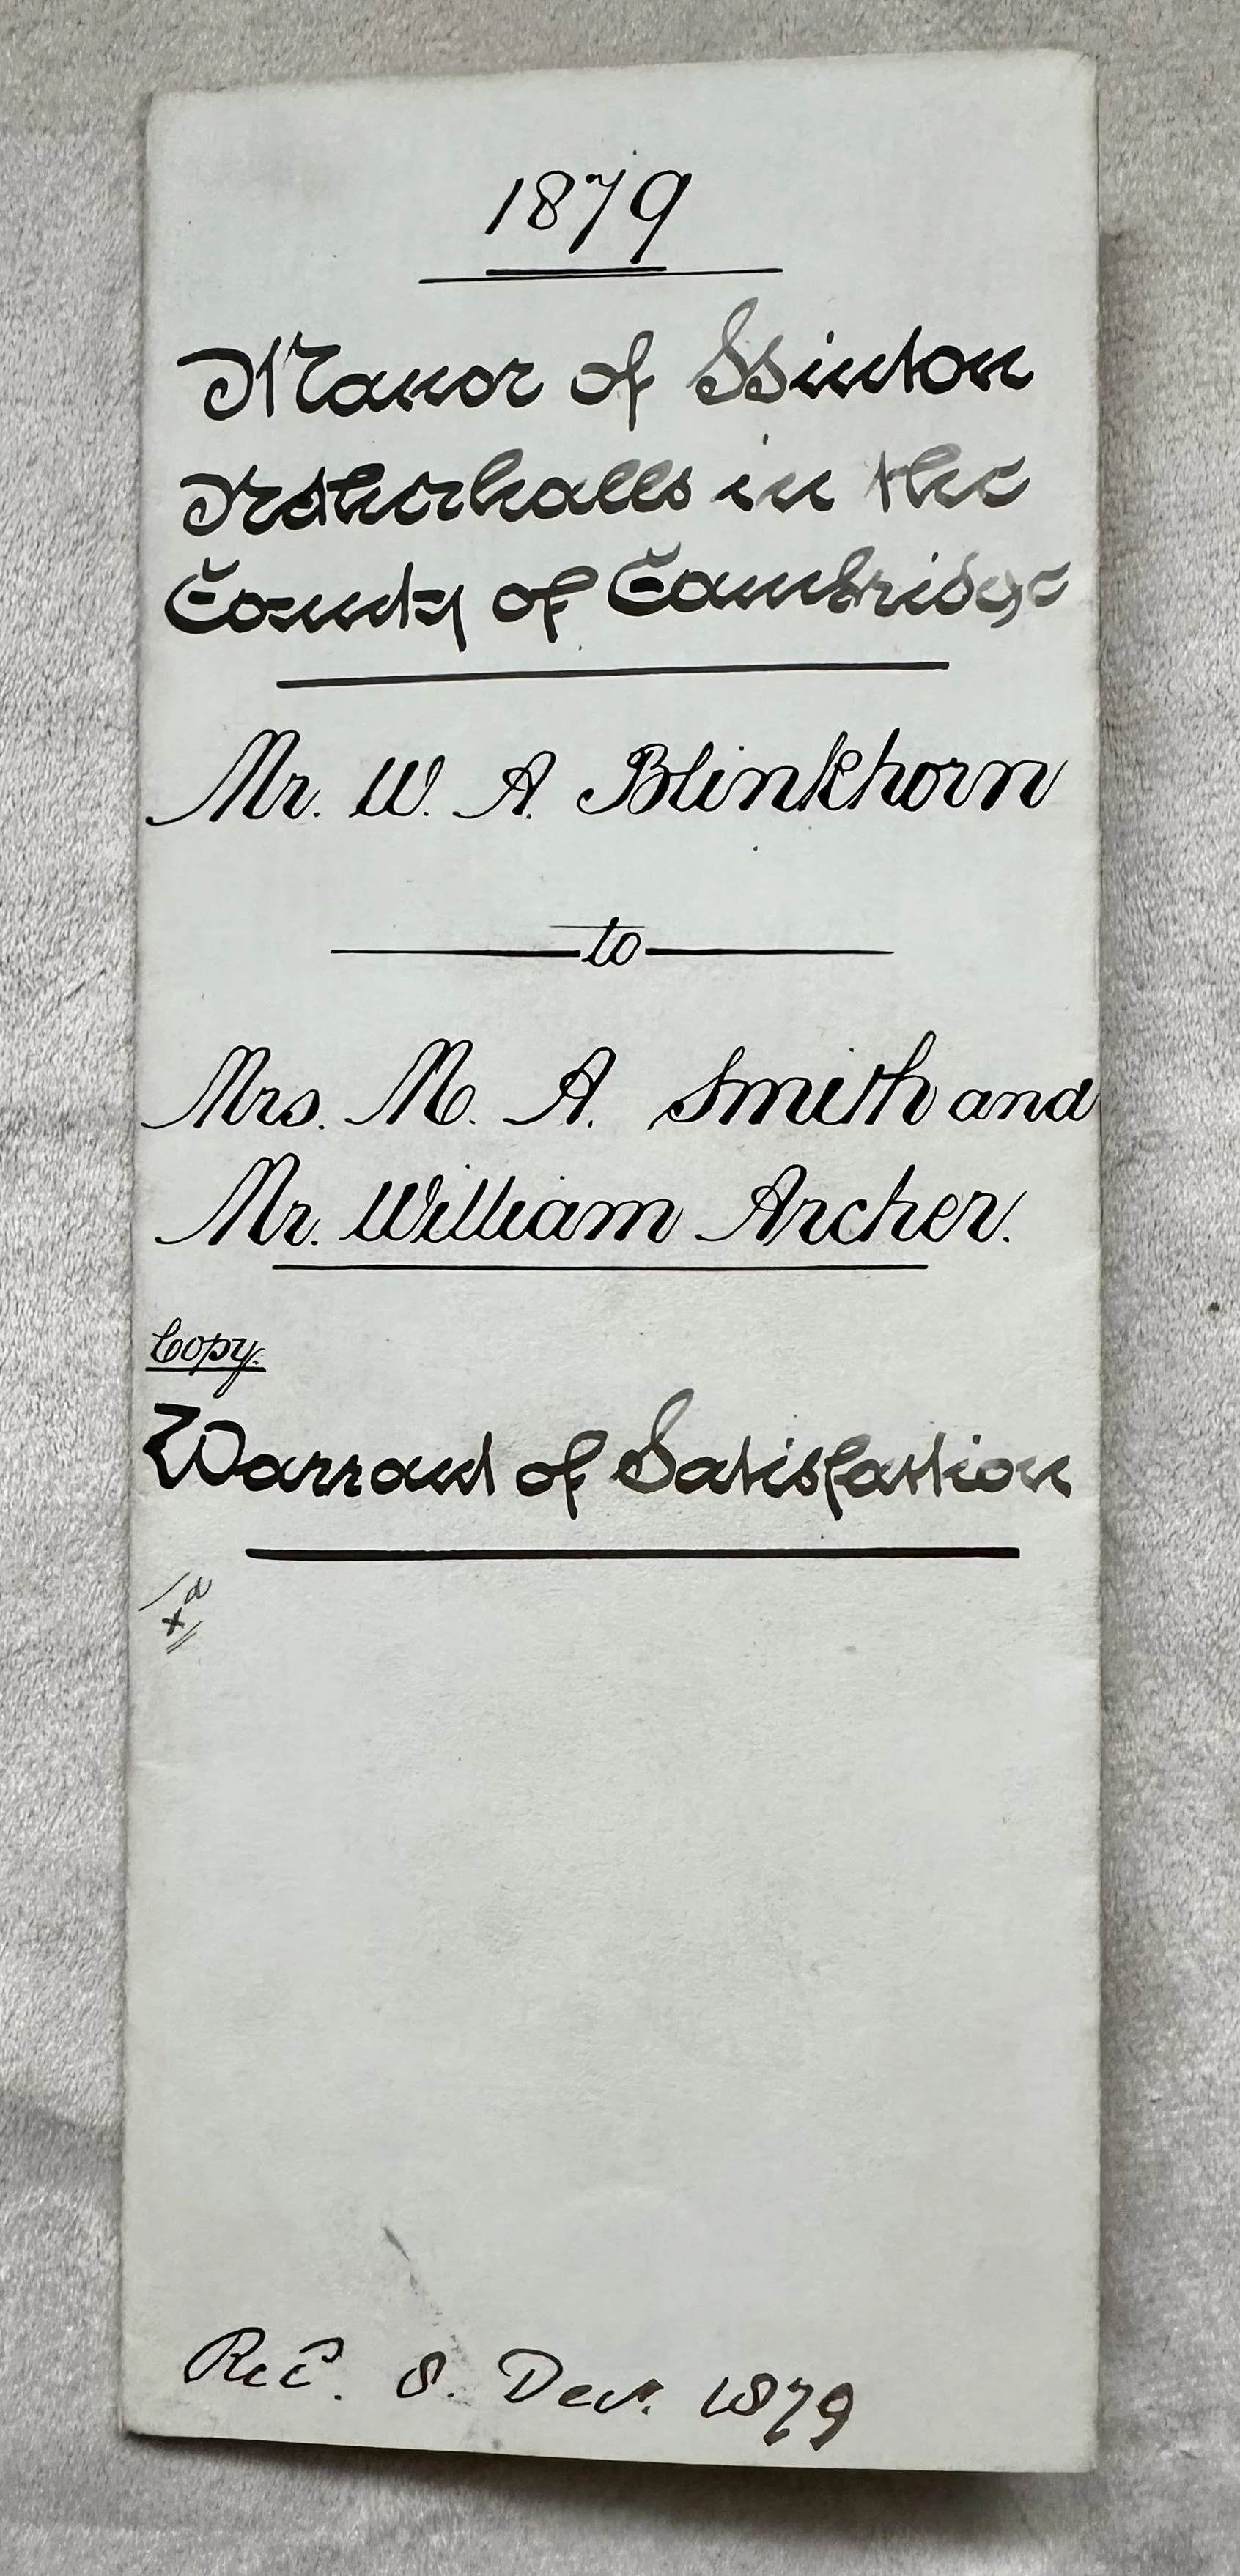 1879
Manor of Hinton
Netherhalls in the
County of Cambridge
Mr. W. A. Blinkhorn
to
Mrs. M. A. Smith and
Mr. William Archer.
Copy.
Warrant of Satisfaction
Recd. 8. Decr. 1879